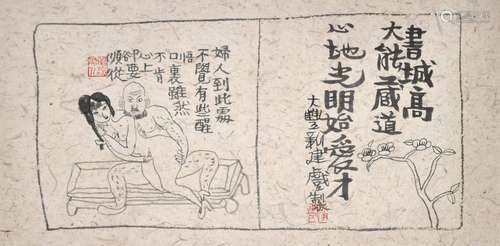 書城高
大能藏道
心地光明始愛才
大豐新建戲製
婦人到此處
不覺有些醒
悟口裏雖然
不肯
心上
卻要
順從